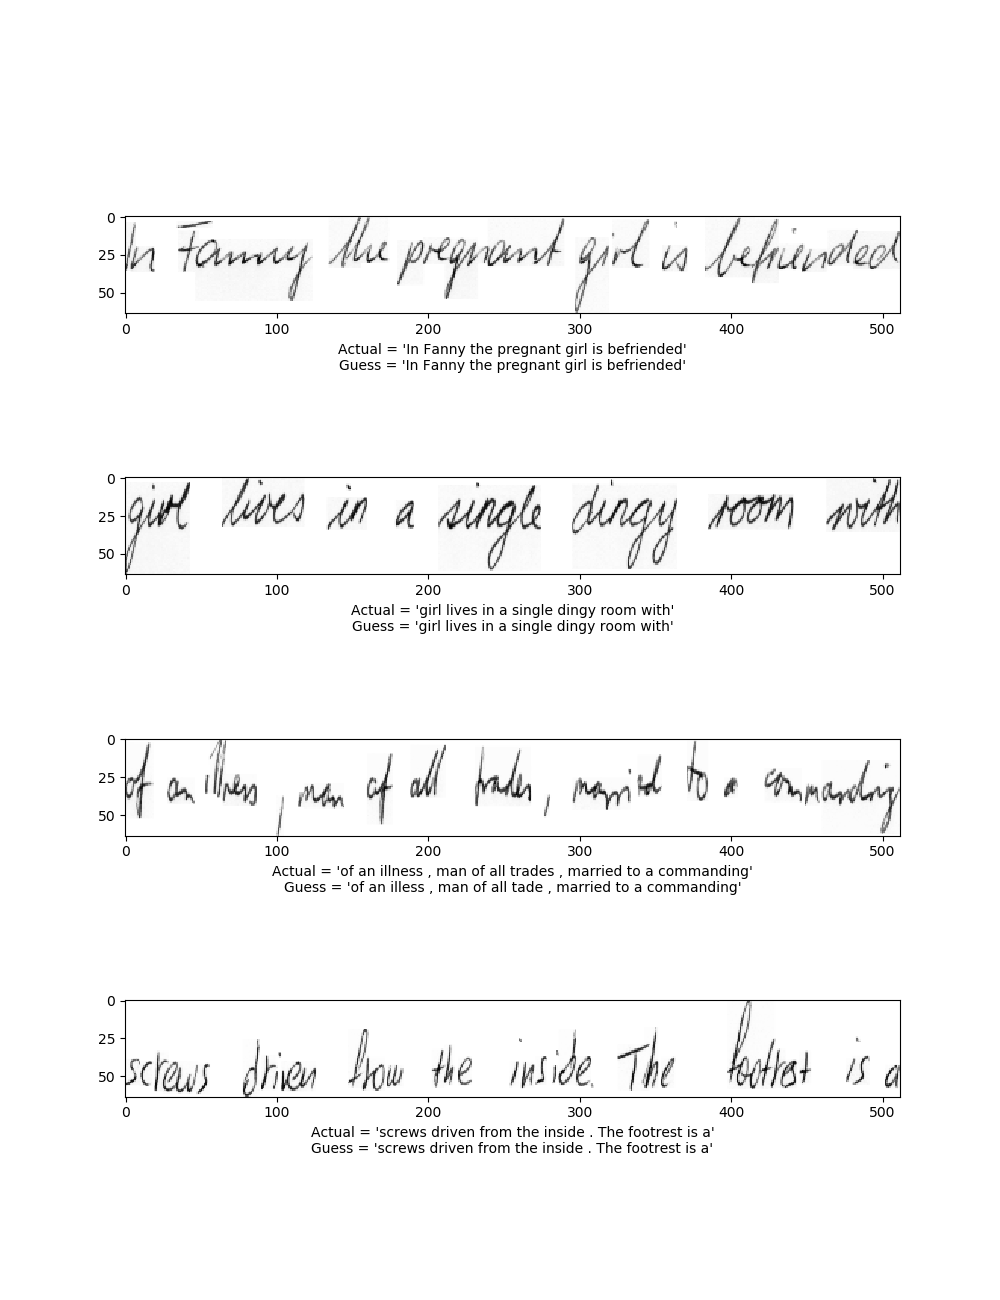 0
25
50
In Fanny the pregnant girl is befriended
0 100 200 300 400 500
Actual = 'In Fanny the pregnant girl is befriended'
Guess = 'In Fanny the pregnant girl is befriended'
0
25
50
girl lives in a single dingy room with
0 100 200 300 400 500
Actual = 'girl lives in a single dingy room with'
Guess = 'girl lives in a single dingy room with'
0
25
50
of an illness , man of all trades , married to a commanding
0 100 200 300 400 500
Actual = 'of an illness , man of all trades , married to a commanding'
Guess = 'of an illess , man of all tade , married to a commanding'
0
25
50
screws driven from the inside . The footrest is a
0 100 200 300 400 500
Actual = 'screws driven from the inside . The footrest is a'
Guess = 'screws driven from the inside . The footrest is a'